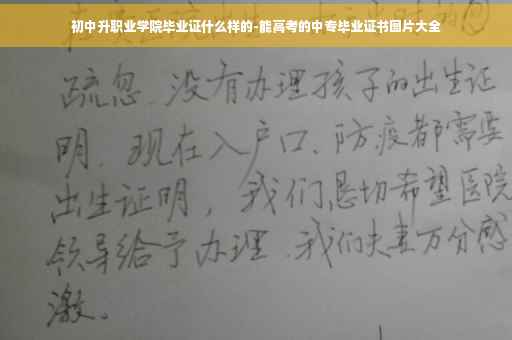 初中升职业学院毕业证什么样的-能高考的中专毕业证书图片大全
疏忽.没有办理孩子的出生证
明.现在入户口、防疫都需要
出生证明，我们恳切希望医院
领导给予办理.我们夫妻万分感
激。